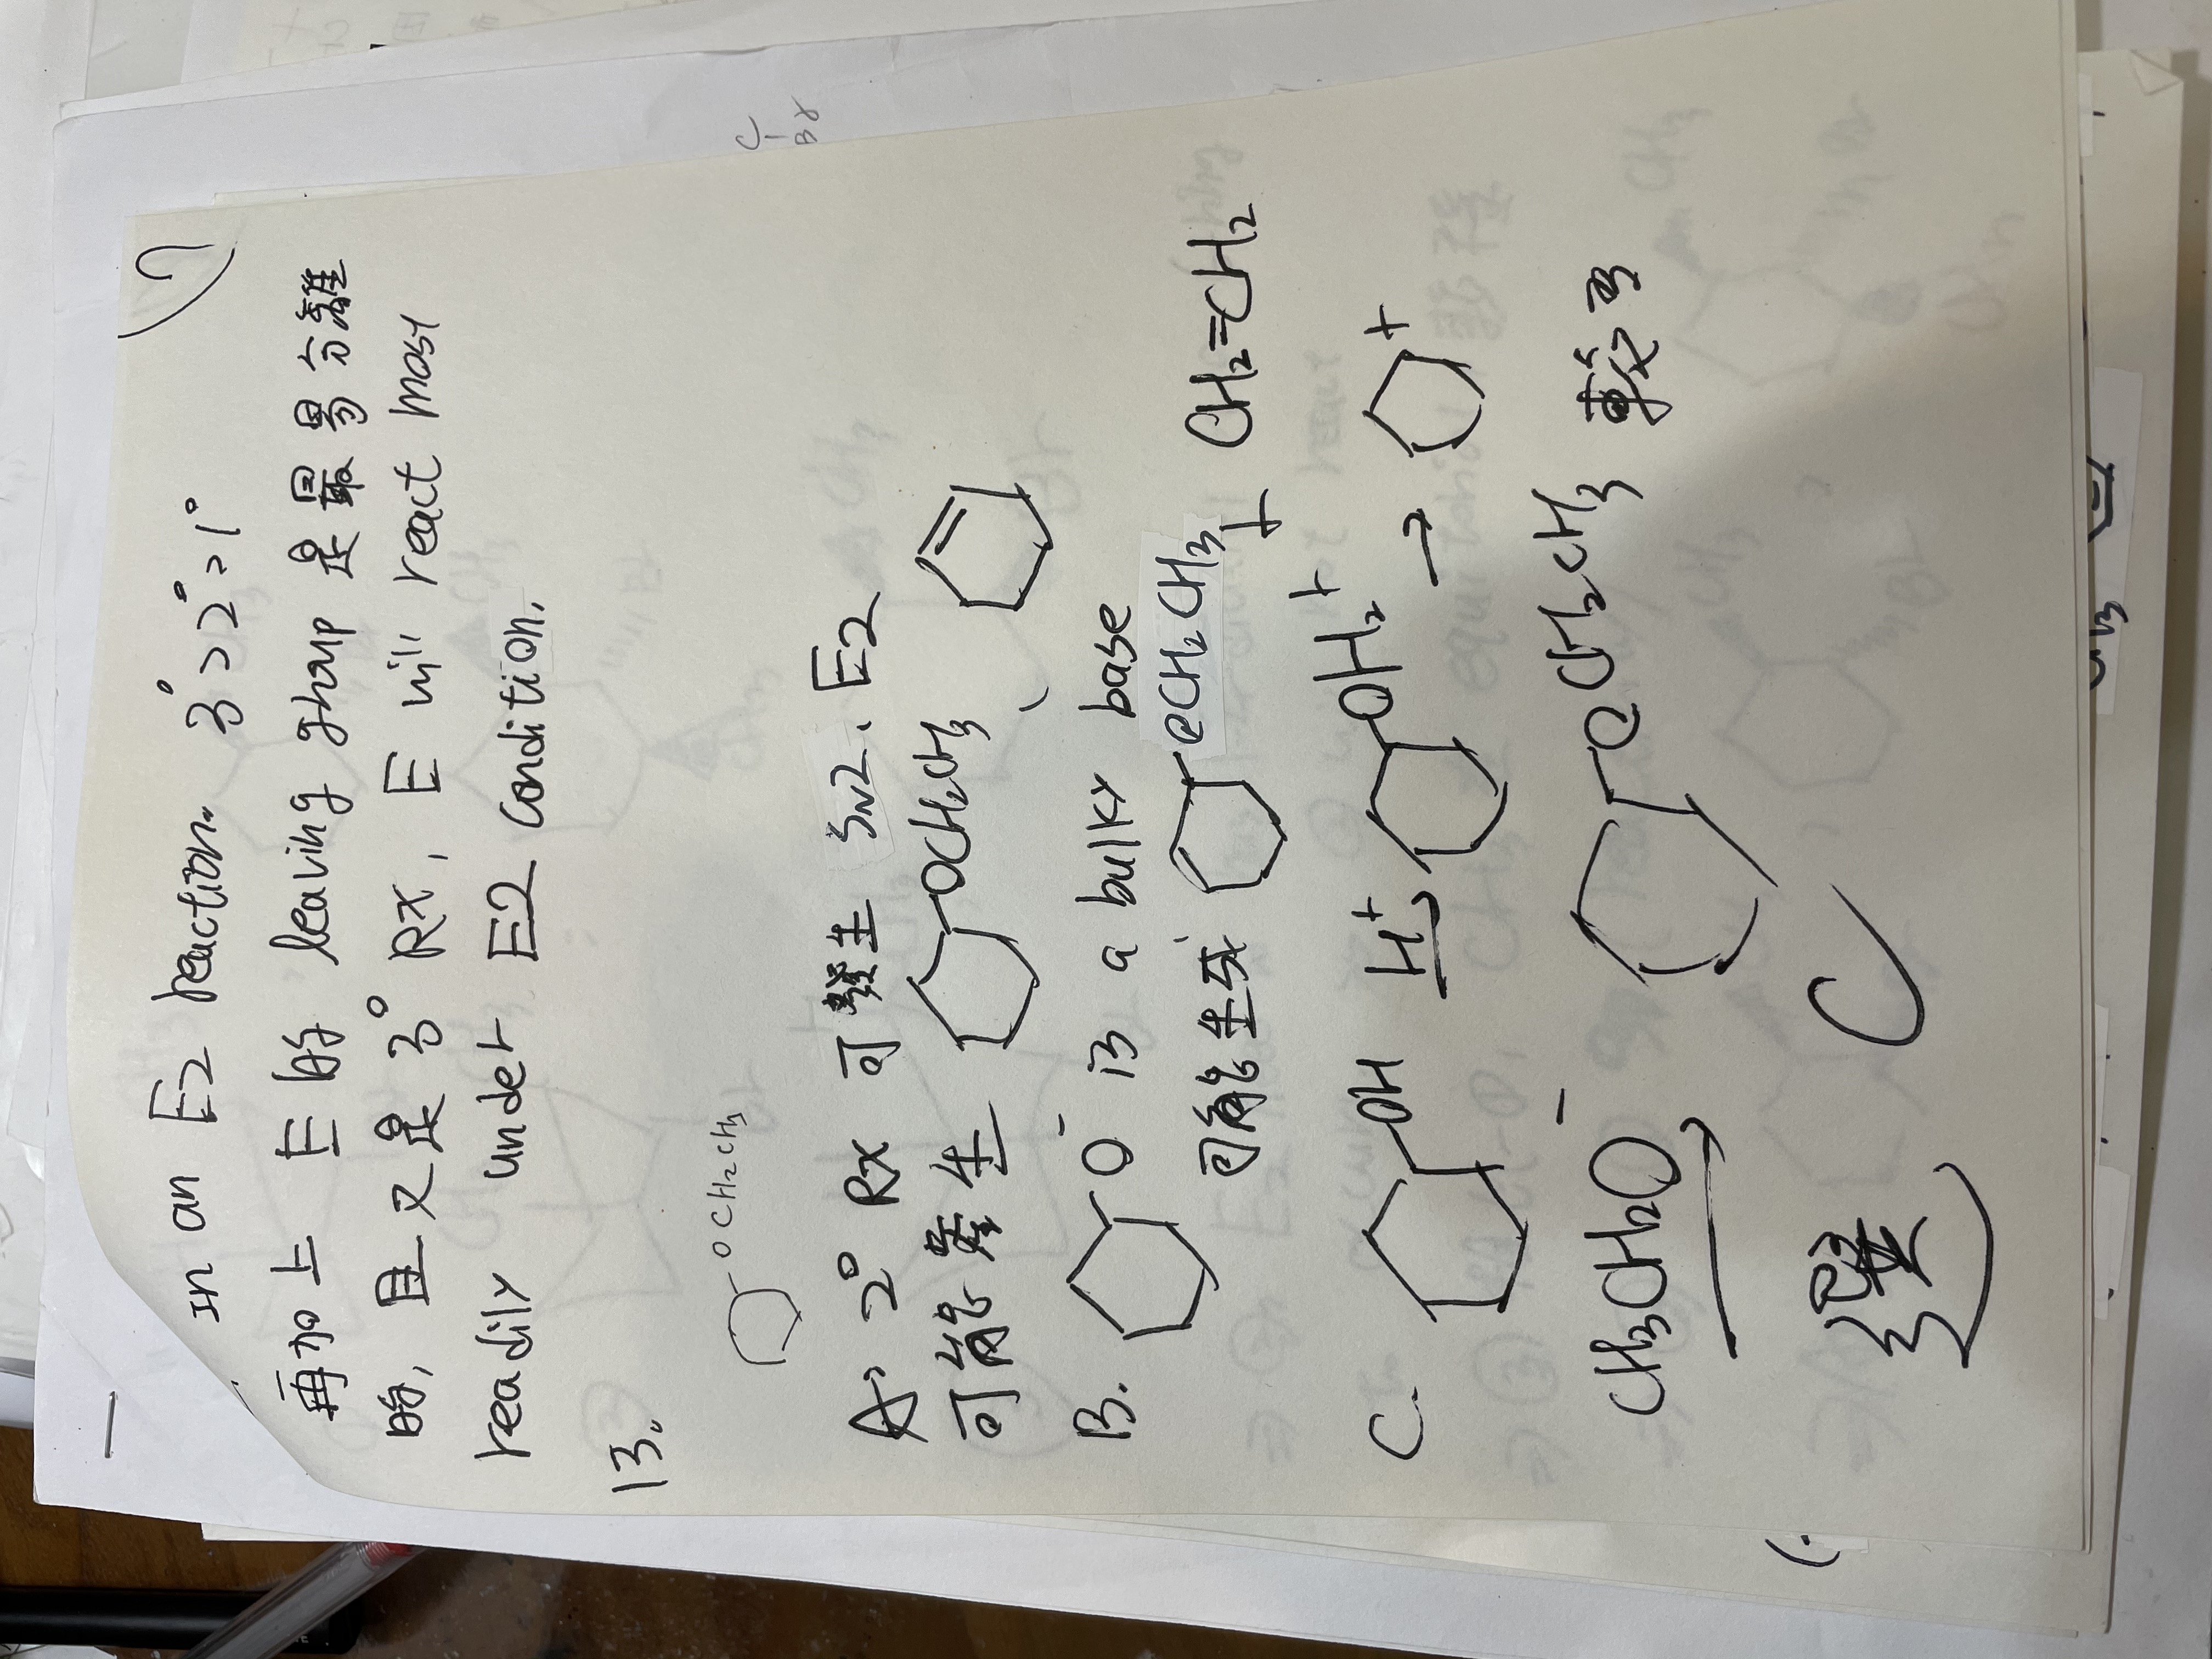 7
In an E2 reaction. 3°>2°>1°
再加上 E 的 leaving group 是最易分離
的, 且又是 3° RX, E will react most
readily under E2 condition.
13.
OCH2CH3
A. 2° RX 可發生 SN2、E2
可能產生 OCH2CH3、
B. O⁻ is a bulky base
可能生成 OCH2CH3 + CH2=CH2
C. OH H⁺ → OH2⁺ → +
CH3CH2O⁻ → OCH2CH3 較多
選 C
C
Br